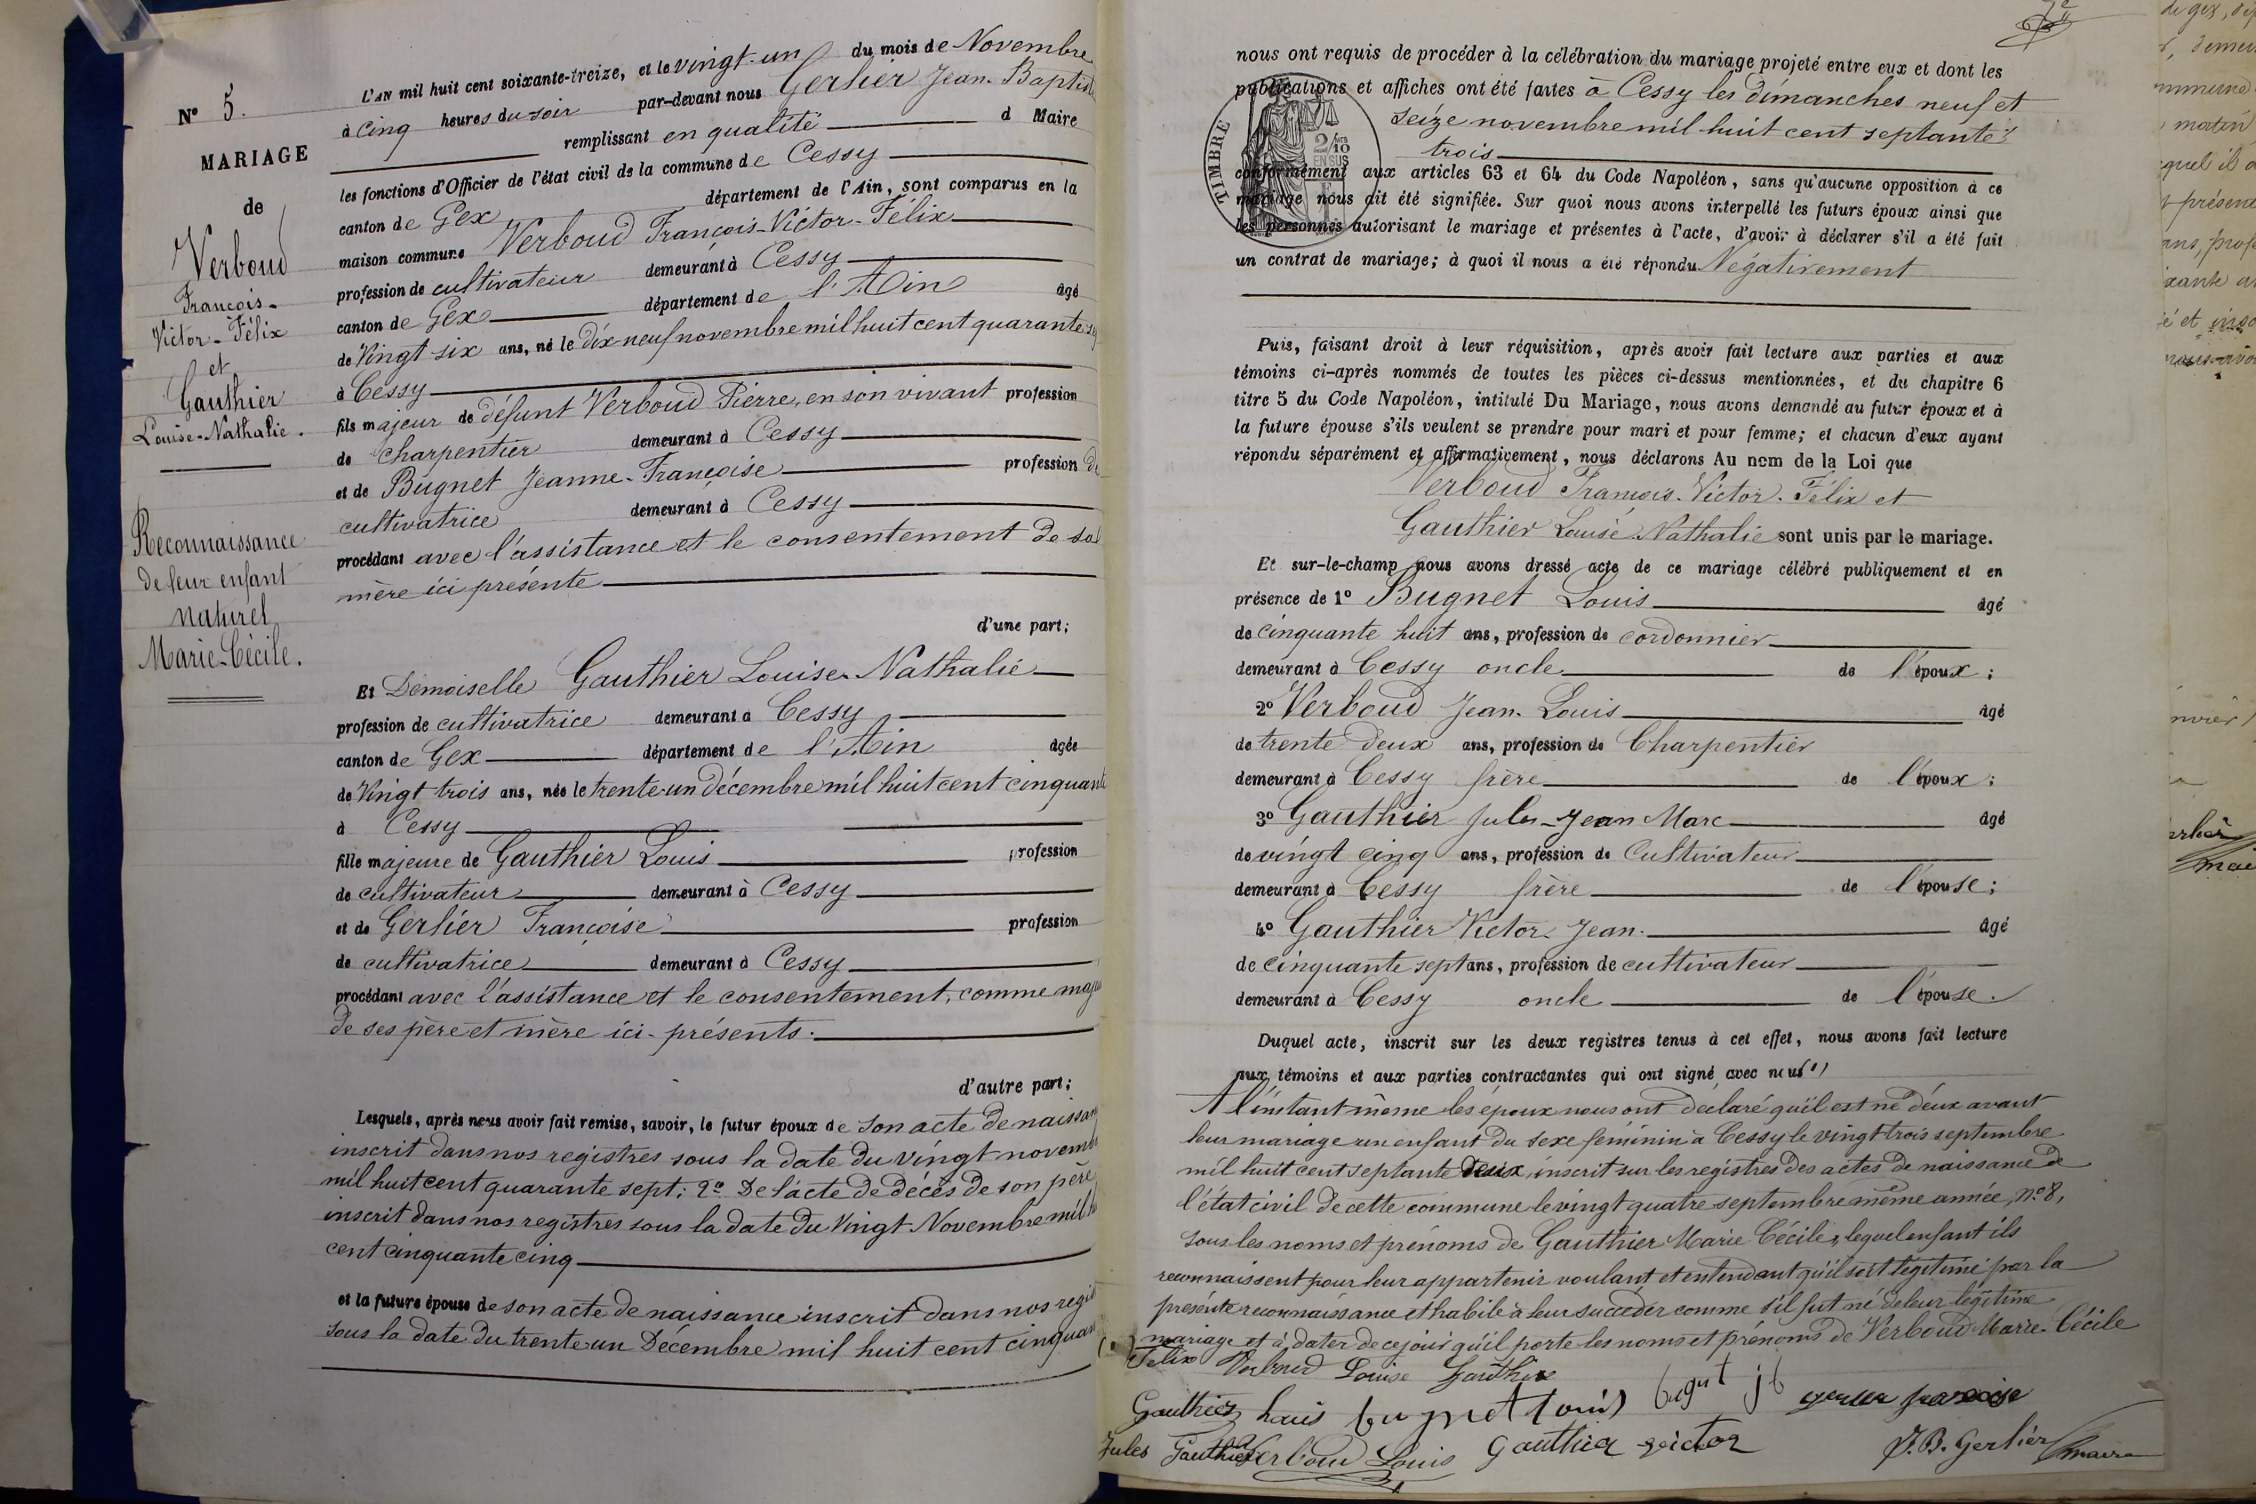 N° 5.
MARIAGE
de
Verboud
François-
Victor-Félix
et
Gauthier
Louise-Nathalie.
Reconnaissance
de leur enfant
naturel
Marie-Cécile.
L'AN mil huit cent soixante-treize, et le vingt-un du mois de Novembre
à cinq heures du soir par-devant nous Gerlier Jean-Baptiste
remplissant en qualité d Maire
les fonctions d'Officier de l'état civil de la commune de Cessy
canton de Gex département de l'Ain, sont comparus en la
maison commune Verboud François-Victor-Félix
profession de cultivateur demeurant à Cessy
canton de Gex département de l'Ain âgé
de Vingt six ans, né le dix-neuf novembre mil huit cent quarante
à Cessy
fils majeur de défunt Verboud Pierre, en son vivant profession
de charpentier demeurant à Cessy
et de Bugnet Jeanne-Françoise profession de
cultivatrice demeurant à Cessy
procédant avec l'assistance et le consentement de sa
mère ici présente
d'une part;
Et Demoiselle Gauthier Louise-Nathalie
profession de cultivatrice demeurant à Cessy
canton de Gex département de l'Ain âgée
de Vingt trois ans, née le trente-un décembre mil huit cent cinquante
à Cessy
fille majeure de Gauthier Louis profession
de cultivateur demeurant à Cessy
et de Gerlier Françoise profession
de cultivatrice demeurant à Cessy
procédant avec l'assistance et le consentement, comme
de ses père et mère ici-présents.
d'autre part;
Lesquels, après nous avoir fait remise, savoir, le futur époux de son acte de
inscrit dans nos registres sous la date du vingt
mil huit cent quarante sept; 2° De l'acte de décès de son père
inscrit dans nos registres sous la date du Vingt Novembre mil
cent cinquante cinq
et la future épouse de son acte de naissance inscrit dans nos
sous la date du trente-un Décembre mil huit cent
nous ont requis de procéder à la célébration du mariage projeté entre eux et dont les
publications et affiches ont été faites à Cessy les dimanches neuf et
seize novembre mil huit cent septante
trois
TIMBRE
2/10
EN SUS
conformément aux articles 63 et 64 du Code Napoléon, sans qu'aucune opposition à ce
mariage nous ait été signifiée. Sur quoi nous avons interpellé les futurs époux ainsi que
les personnes autorisant le mariage et présentes à l'acte, d'avoir à déclarer s'il a été fait
un contrat de mariage; à quoi il nous a été répondu Négativement
Puis, faisant droit à leur réquisition, après avoir fait lecture aux parties et aux
témoins ci-après nommés de toutes les pièces ci-dessus mentionnées, et du chapitre 6
titre 5 du Code Napoléon, intitulé Du Mariage, nous avons demandé au futur époux et à
la future épouse s'ils veulent se prendre pour mari et pour femme; et chacun d'eux ayant
répondu séparément et affirmativement, nous déclarons Au nom de la Loi que
Verboud François-Victor-Félix et
Gauthier Louise Nathalie sont unis par le mariage.
Et sur-le-champ nous avons dressé acte de ce mariage célébré publiquement et en
présence de 1° Bugnet Louis âgé
de cinquante huit ans, profession de cordonnier
demeurant à Cessy oncle de l'époux;
2° Verboud Jean-Louis âgé
de trente deux ans, profession de Charpentier
demeurant à Cessy frère de l'époux;
3° Gauthier Jules-Jean Marc âgé
de vingt cinq ans, profession de Cultivateur
demeurant à Cessy frère de l'épouse;
4° Gauthier Victor-Jean. âgé
de cinquante sept ans, profession de cultivateur
demeurant à Cessy oncle de l'épouse.
Duquel acte, inscrit sur les deux registres tenus à cet effet, nous avons fait lecture
aux témoins et aux parties contractantes qui ont signé avec nous (1)
A l'instant même les époux nous ont déclaré qu'il est né d'eux avant
leur mariage un enfant du sexe féminin à Cessy le vingt-trois septembre
mil huit cent septante deux, inscrit sur les registres des actes de naissance de
l'état civil de cette commune le vingt quatre septembre même année, N° 8,
sous les noms et prénoms de Gauthier Marie Cécile, lequel enfant ils
reconnaissent pour leur appartenir voulant et entendant qu'il soit légitimé par la
présente reconnaissance et habile à leur succéder comme s'il fut né de leur légitime
(1) mariage et à dater de ce jour qu'il porte les noms et prénoms de Verboud Marie-Cécile
Félix Verboud Louise Gauthier
Gauthier Louis bugnet louis bugnet j f gerlier françoise
Jules Gauthier Verboud Louis Gauthier victor J. B. Gerlier maire